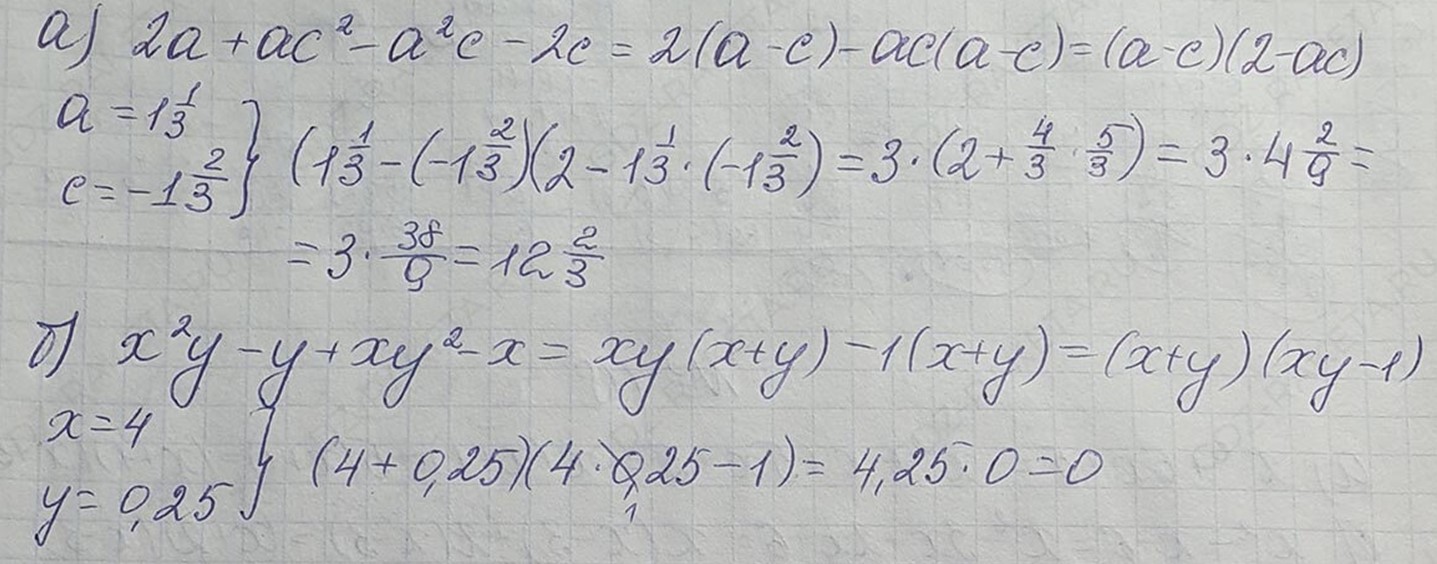 а) 2a + ac² - a²c - 2c = 2(a - c) - ac(a - c) = (a - c)(2 - ac)
a = 1 1/3
c = -1 2/3 } (1 1/3 - (-1 2/3)(2 - 1 1/3 · (-1 2/3) = 3 · (2 + 4/3 · 5/3) = 3 · 4 2/9 =
= 3 · 38/9 = 12 2/3
б) x²y - y + xy² - x = xy(x+y) - 1(x+y) = (x+y)(xy-1)
x = 4
y = 0,25 } (4 + 0,25)(4 · 0,25 - 1) = 4,25 · 0 = 0
1